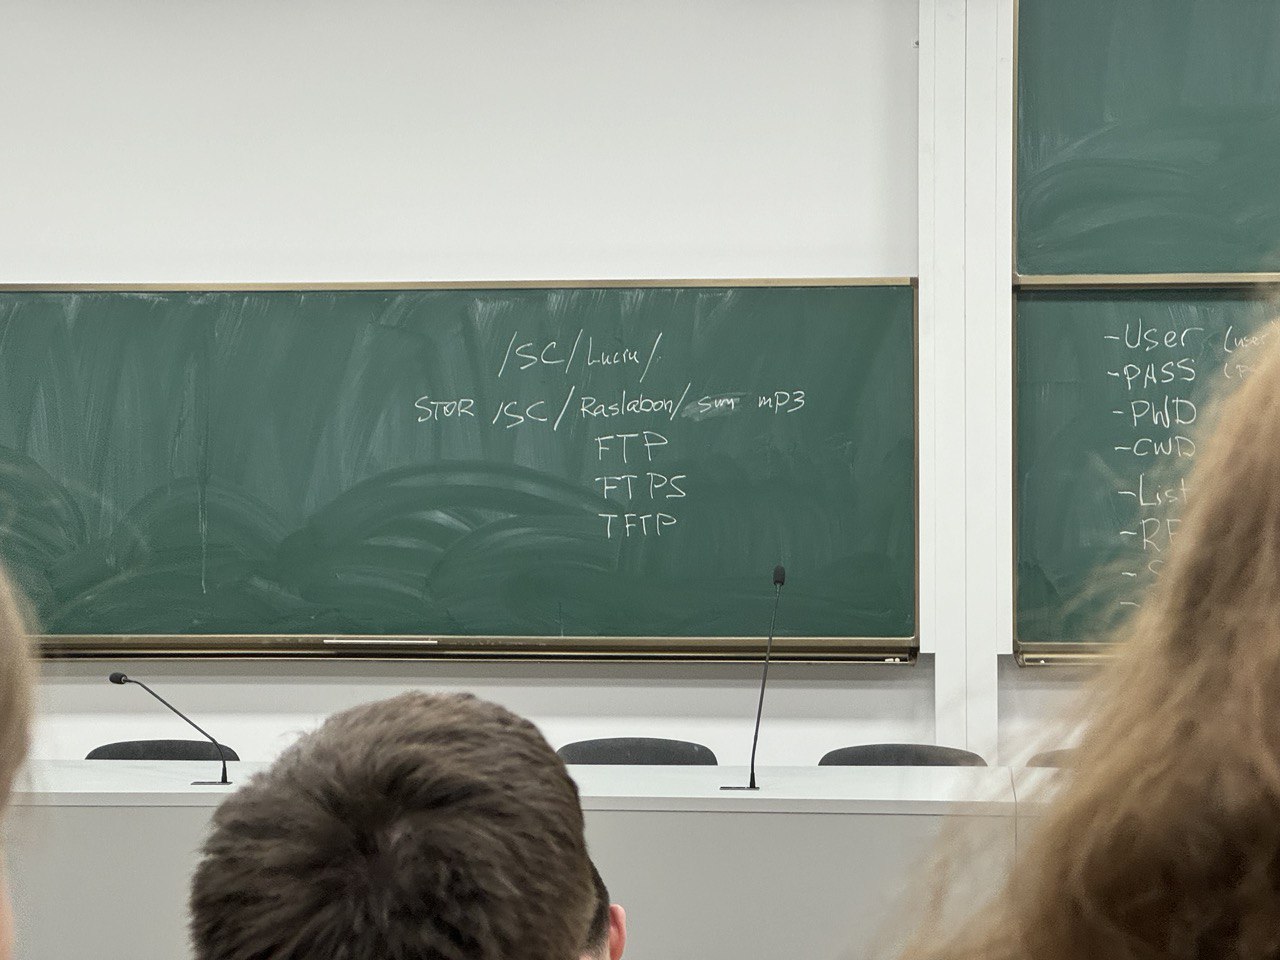 /SC/Luciu/
STOR /SC/Raslabon/ mp3
FTP
FTPS
TFTP
-User (user
-PASS
-PWD
-CWD
-List